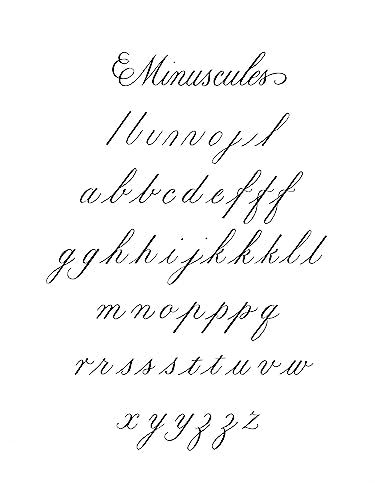 Minuscules
a b b c d e f f f
g g h h i j k k k l l
m n o p p p q
r r s s s t t u v w
x y y z z z